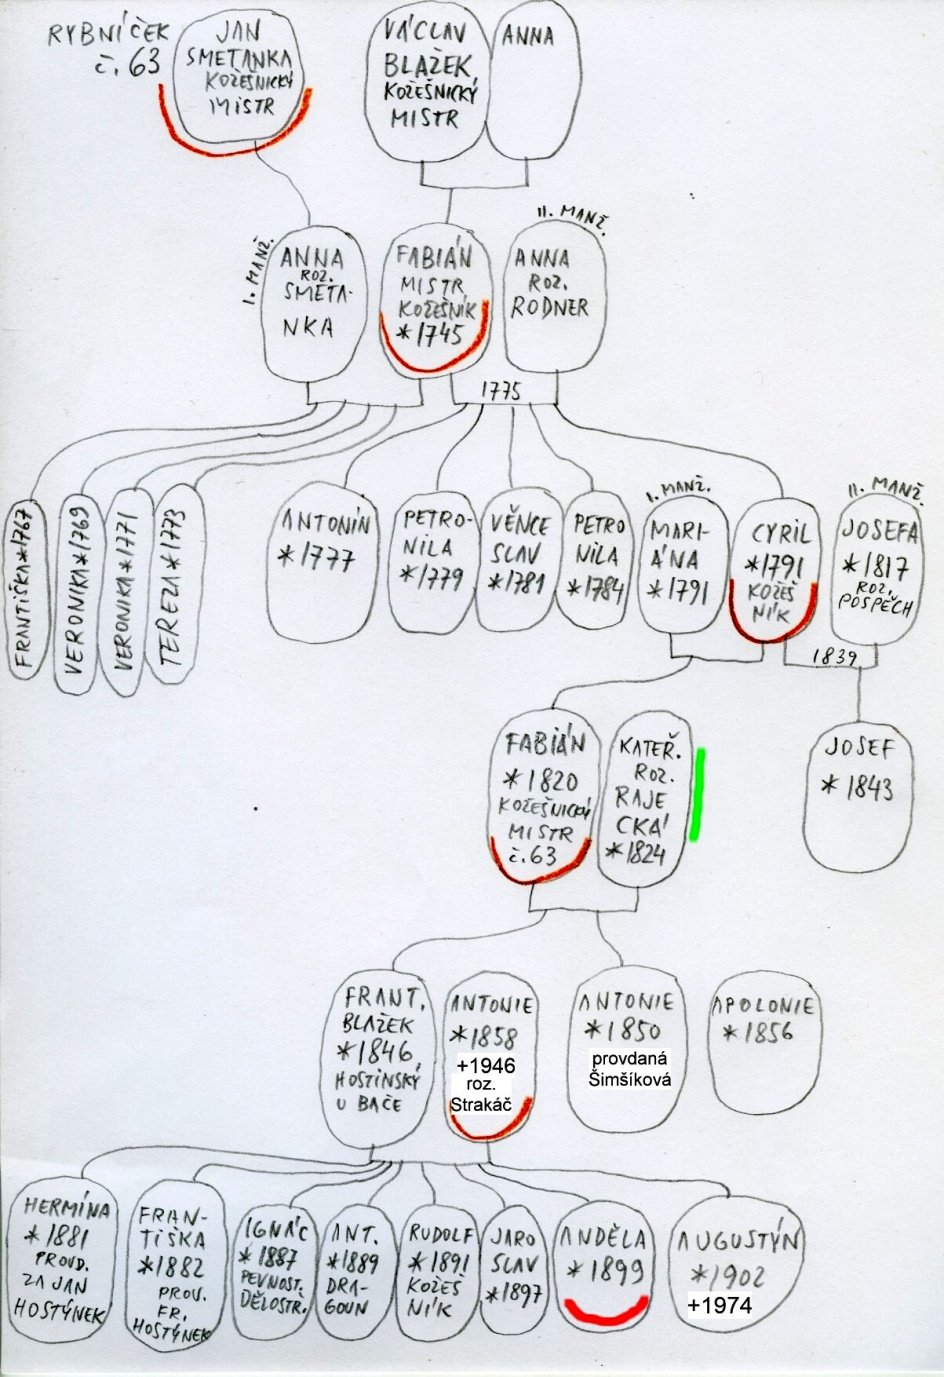 RYBNÍČEK
č. 63
JAN
SMETANKA
KOŽEŠNICKÝ
MISTR
VÁCLAV
BLAŽEK,
KOŽEŠNICKÝ
MISTR
ANNA
I. MANŽ.
ANNA
ROZ.
SMETA-
NKA
FABIÁN
MISTR
KOŽEŠNÍK
*1745
II. MANŽ.
ANNA
ROZ.
RODNER
1775
FRANTIŠKA*1767
VERONIKA*1769
VERONIKA*1771
TEREZA*1773
ANTONÍN
*1777
PETRO-
NILA
*1779
VĚNCE
SLAV
*1781
PETRO
NILA
*1784
I. MANŽ.
MARI-
ÁNA
*1791
CYRIL
*1791
KOŽEŠ
NÍK
II. MANŽ.
JOSEFA
*1817
ROZ.
POSPĚCH
1839
FABIÁN
*1820
KOŽEŠNICKÝ
MISTR
č. 63
KATEŘ.
ROZ.
RAJE
CKÁ
*1824
JOSEF
*1843
FRANT.
BLAŽEK
*1846,
HOSTINSKÝ
U BAČE
ANTONIE
*1858
+1946
roz.
Strakáč
ANTONIE
*1850
provdaná
Šimšíková
APOLONIE
*1856
HERMÍNA
*1881
PROVD.
ZA JAN
HOSTÝNEK
FRAN-
TIŠKA
*1882
PROV.
FR.
HOSTÝNEK
IGNÁC
*1887
PEVNOST.
DĚLOSTR.
ANT.
*1889
DRA-
GOUN
RUDOLF
*1891
KOŽEŠ
NÍK
JARO
SLAV
*1897
ANDĚLA
*1899
AUGUSTÝN
*1902
+1974